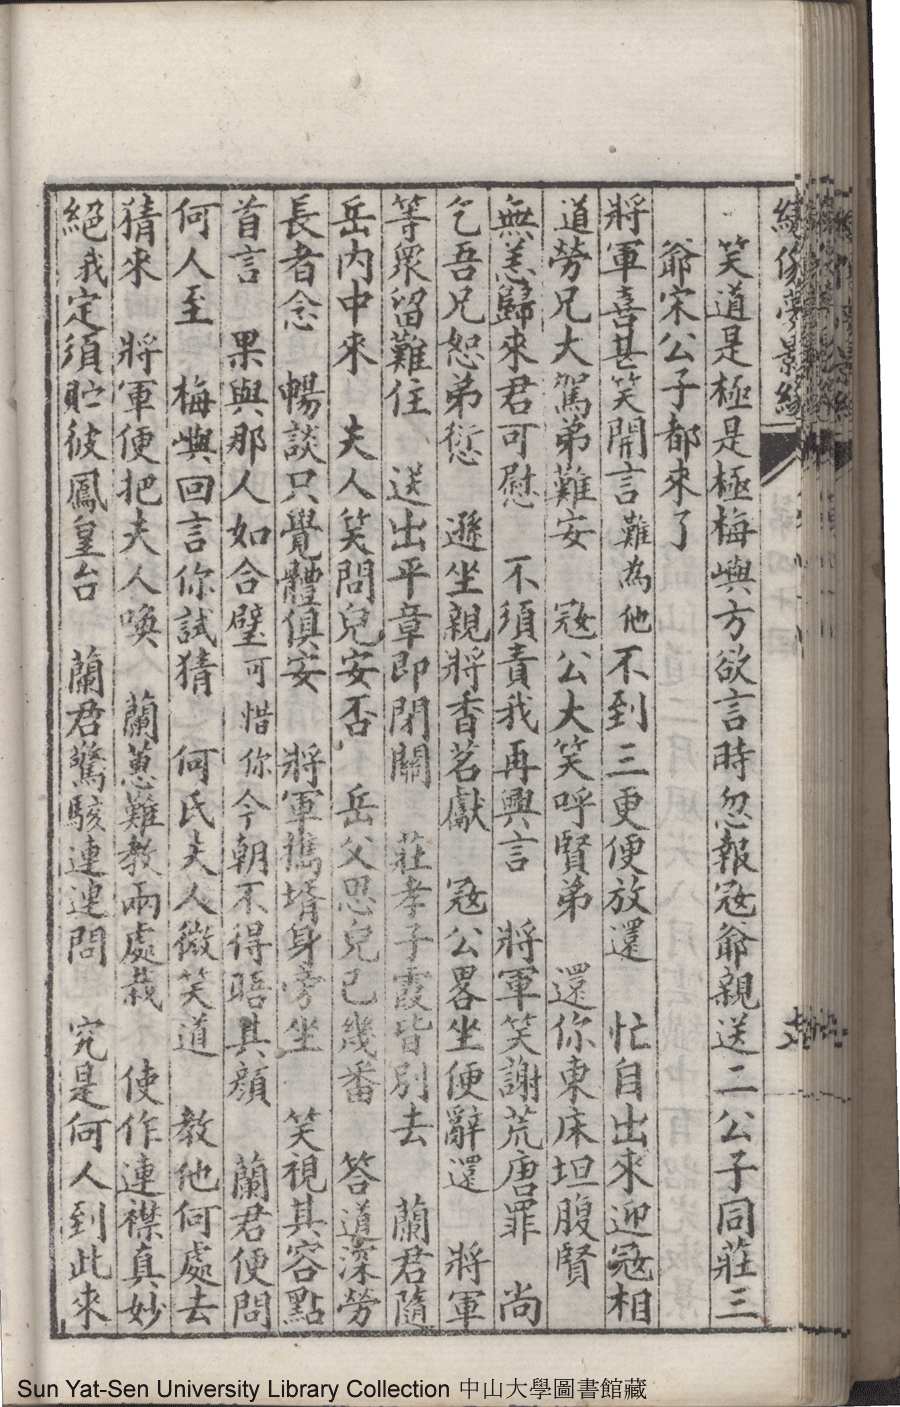 繡像夢影緣
笑道是極是極梅嶼方欲言時忽報冦爺親送二公子同莊三
爺宋公子都來了
將軍喜甚笑開言難為他不到三更便放還　忙自出來迎冦相
道勞兄大駕弟難安　冦公大笑呼賢弟　還你東床坦腹賢
無恙歸來君可慰　不須責我再興言　將軍笑謝荒唐罪　尚
乞吾兄恕弟愆　遜坐親將香茗獻　冦公畧坐便辭還　將軍
等衆留難住　送出平章即閉關　莊孝子霞皆別去　蘭君隨
岳內中來　夫人笑問兒安否　岳父思兒已幾番　答道深勞
長者念　暢談只覺體俱安　將軍攜壻身旁坐　笑視其容點
首言　果與那人如合璧可惜你今朝不得晤其顔　蘭君便問
何人至　梅嶼回言你試猜　何氏夫人微笑道　教他何處去
猜來　將軍便把夫人喚　蘭蕙難教兩處栽　使作連襟真妙
絕我定須貯彼鳳皇台　蘭君驚駭連連問　究是何人到此來
Sun Yat-Sen University Library Collection 中山大學圖書館藏